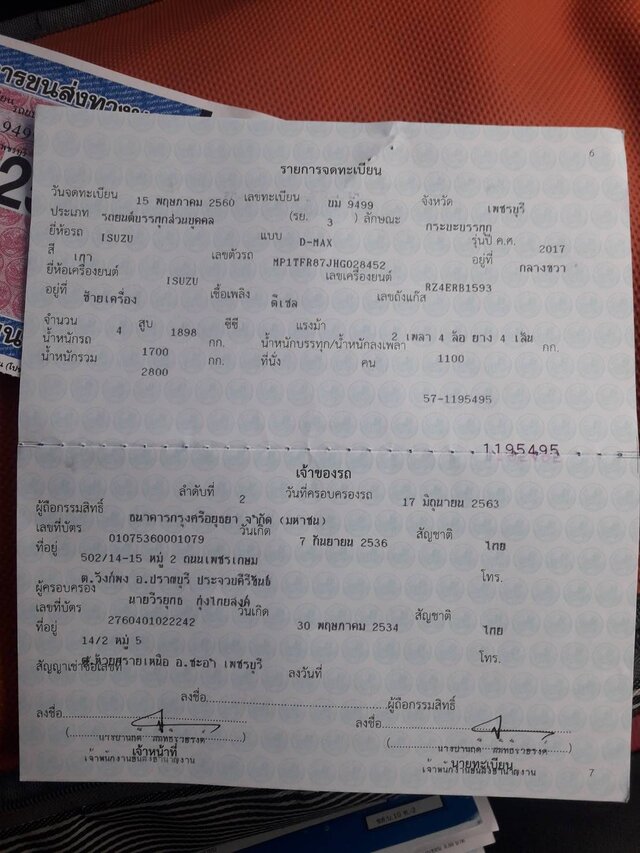 การขนส่งทางบก
949
6
รายการจดทะเบียน
วันจดทะเบียน 15 พฤษภาคม 2560 เลขทะเบียน ขม 9499 จังหวัด เพชรบุรี
ประเภท รถยนต์บรรทุกส่วนบุคคล (รย. 3 ) ลักษณะ กระบะบรรทุก
ยี่ห้อรถ ISUZU แบบ D-MAX รุ่นปี ค.ศ. 2017
สี เทา เลขตัวรถ MP1TFR87JHG028452 อยู่ที่ กลางขวา
ยี่ห้อเครื่องยนต์ ISUZU เลขเครื่องยนต์ RZ4ERB1593
อยู่ที่ ซ้ายเครื่อง เชื้อเพลิง ดีเซล เลขถังแก๊ส
จำนวน 4 สูบ 1898 ซีซี แรงม้า 2 เพลา 4 ล้อ ยาง 4 เส้น
น้ำหนักรถ 1700 กก. น้ำหนักบรรทุก/น้ำหนักลงเพลา 1100 กก.
น้ำหนักรวม 2800 กก. ที่นั่ง คน
57-1195495
1195495
เจ้าของรถ
ลำดับที่ 2 วันที่ครอบครองรถ 17 มิถุนายน 2563
ผู้ถือกรรมสิทธิ์ ธนาคารกรุงศรีอยุธยา จำกัด (มหาชน)
เลขที่บัตร 01075360001079 วันเกิด 7 กันยายน 2536 สัญชาติ ไทย
ที่อยู่ 502/14-15 หมู่ 2 ถนนเพชรเกษม
ต.วังก์พง อ.ปราณบุรี ประจวบคีรีขันธ์ โทร.
ผู้ครอบครอง นายวีรยุทธ กุ่งไทยสงค์
เลขที่บัตร 2760401022242 วันเกิด 30 พฤษภาคม 2534 สัญชาติ ไทย
ที่อยู่ 14/2 หมู่ 5
ต.ห้วยทรายเหนือ อ.ชะอำ เพชรบุรี โทร.
สัญญาเช่าซื้อเลขที่ ลงวันที่
ลงชื่อ ผู้ถือกรรมสิทธิ์
ลงชื่อ ลงชื่อ
เจ้าหน้าที่ นายทะเบียน
เจ้าพนักงานขนส่งชำนาญงาน เจ้าพนักงานขนส่งชำนาญงาน
7